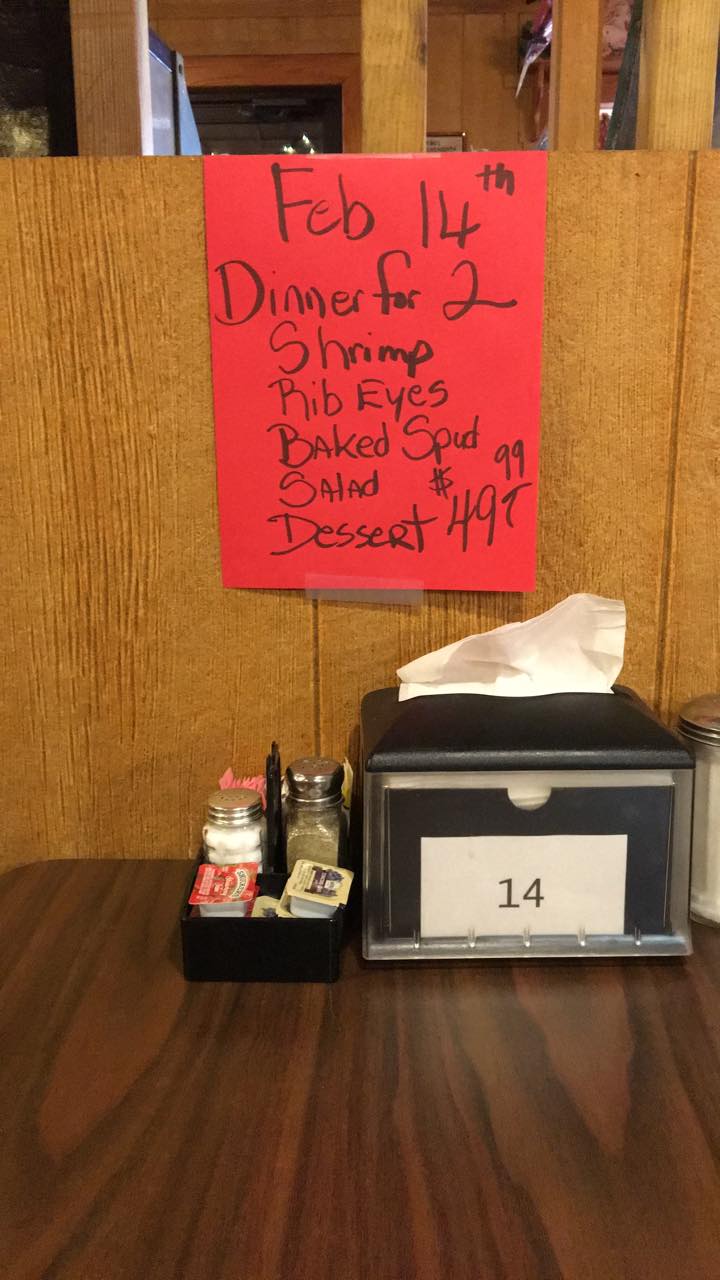 Feb 14th
Dinner for 2
Shrimp
Rib Eyes
Baked Spud
Salad
Dessert $49.99
14